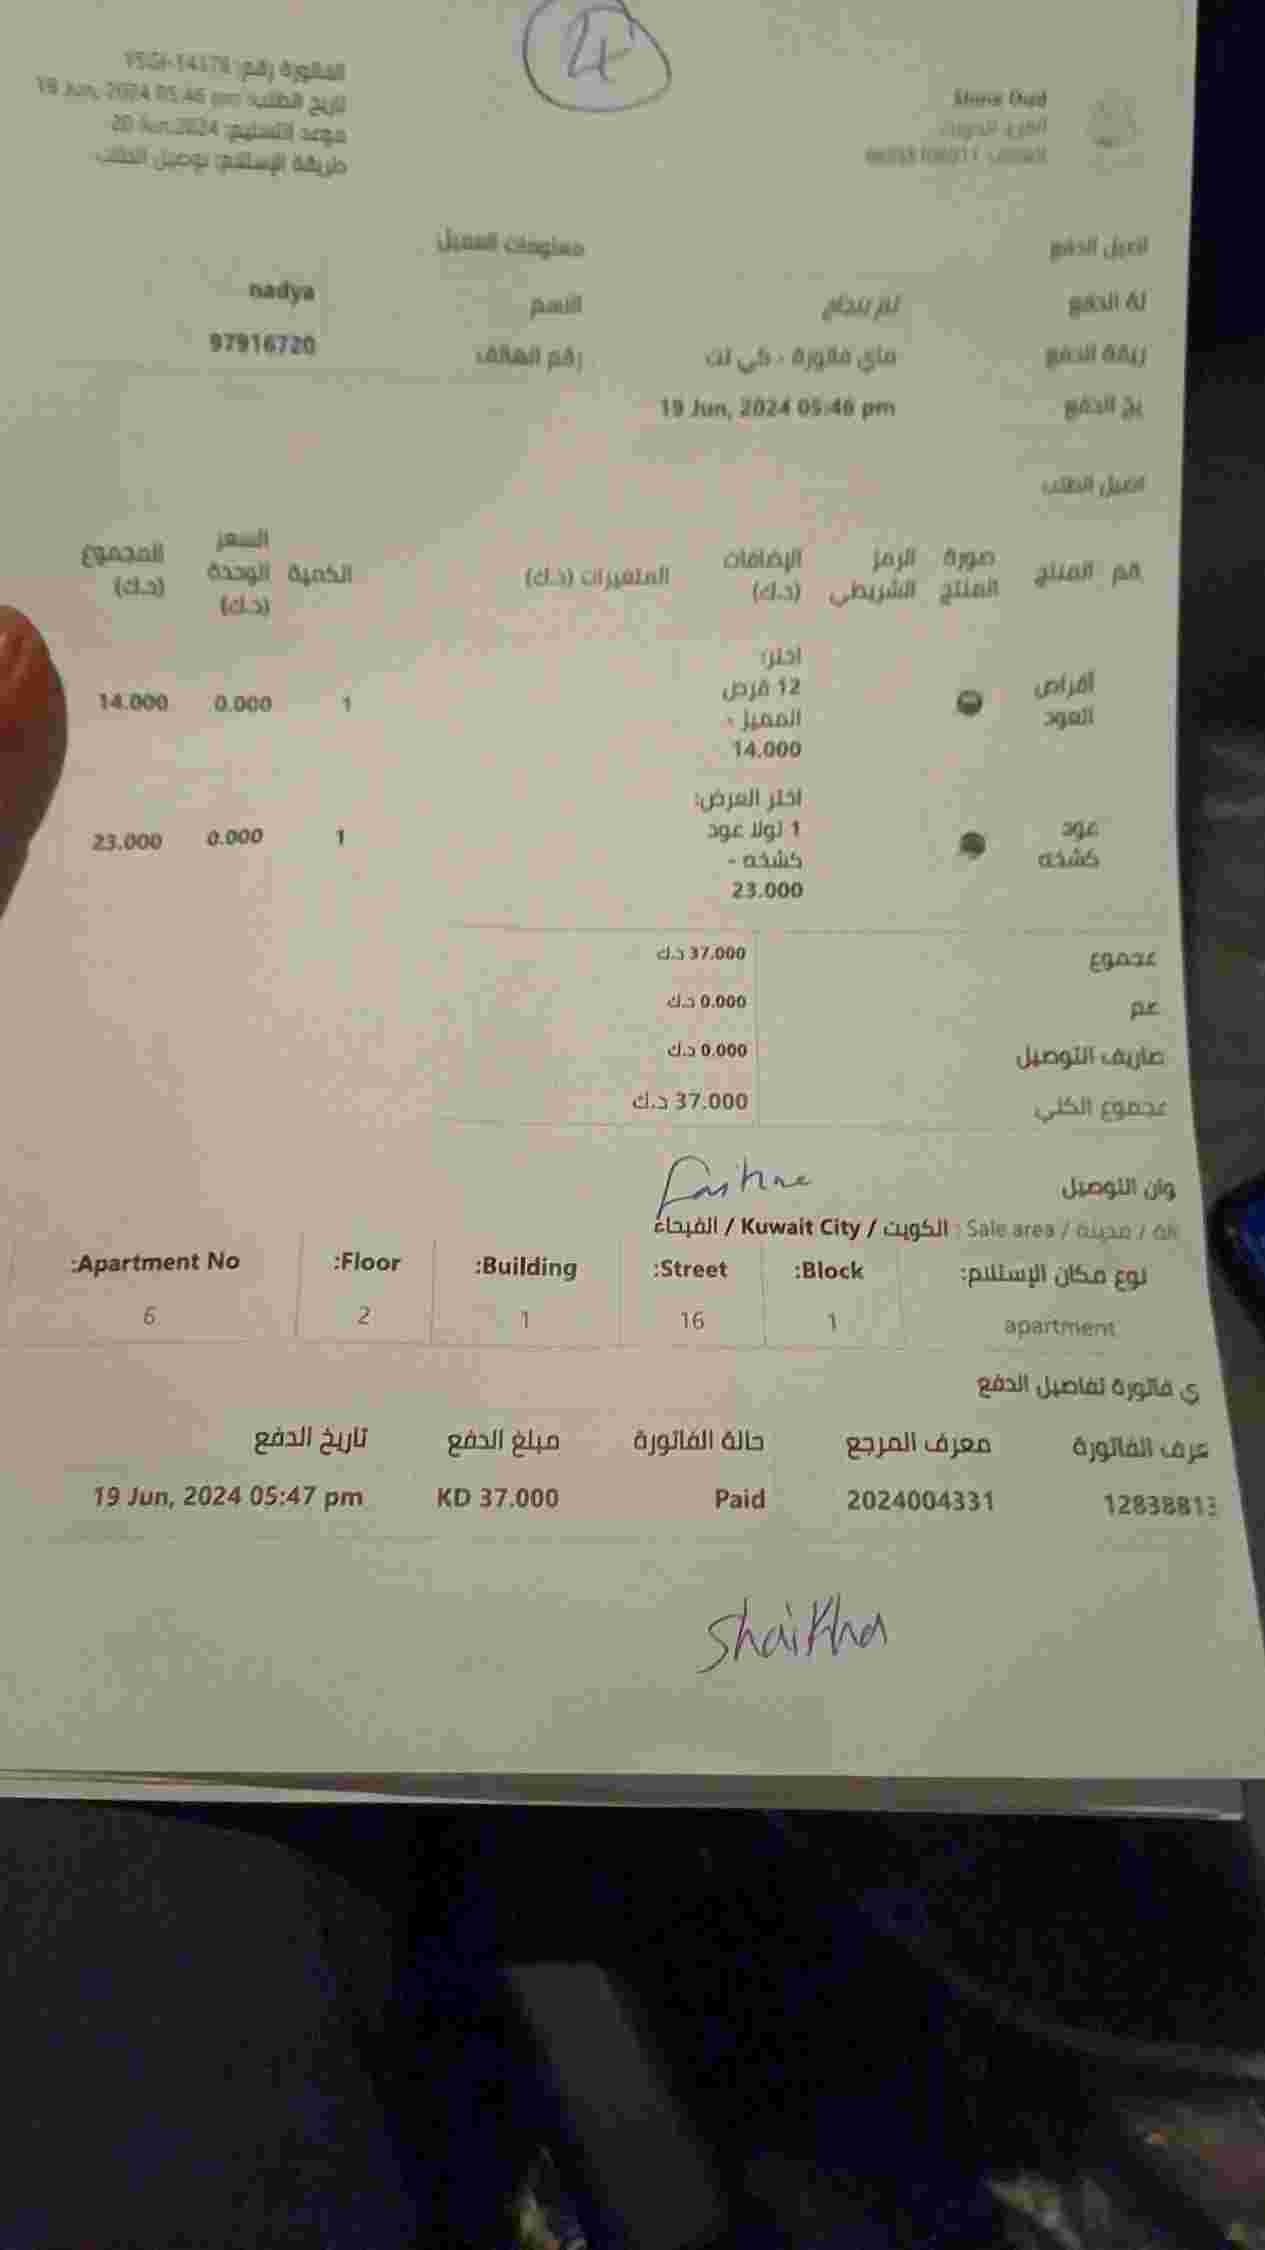 4
الفاتورة رقم:
تاريخ الطلب: 19 Jun, 2024 05:46 pm
موعد التسليم: 20 Jun, 2024
طريقة الإستلام: توصيل الطلب
Oud
معلومات العميل
الاسم nadya
رقم الهاتف 97916720
اصيل الدفع
لة الدفع لم يتم
ريقة الدفع ماي فاتورة - كي نت
يخ الدفع 19 Jun, 2024 05:46 pm
اصيل الطلب
قم المنتج صورة المنتج الرمز الشريطي الإضافات (د.ك) المتغيرات (د.ك) الكمية السعر الوحدة (د.ك) المجموع (د.ك)
أقراص العود اختر: 12 قرص المميز - 14.000 1 0.000 14.000
عود كشخه اختر العرض: 1 تولا عود كشخه - 23.000 1 0.000 23.000
جموع 37.000 د.ك
صم 0.000 د.ك
صاريف التوصيل 0.000 د.ك
جموع الكلي 37.000 د.ك
وان التوصيل
Sale area / مدينة : الكويت / Kuwait City / الفيحاء
نوع مكان الإستلام: Block: Street: Building: Floor: Apartment No:
apartment 1 16 1 2 6
ي فاتورة تفاصيل الدفع
عرف الفاتورة معرف المرجع حالة الفاتورة مبلغ الدفع تاريخ الدفع
12838813 2024004331 Paid KD 37.000 19 Jun, 2024 05:47 pm
Shaikha